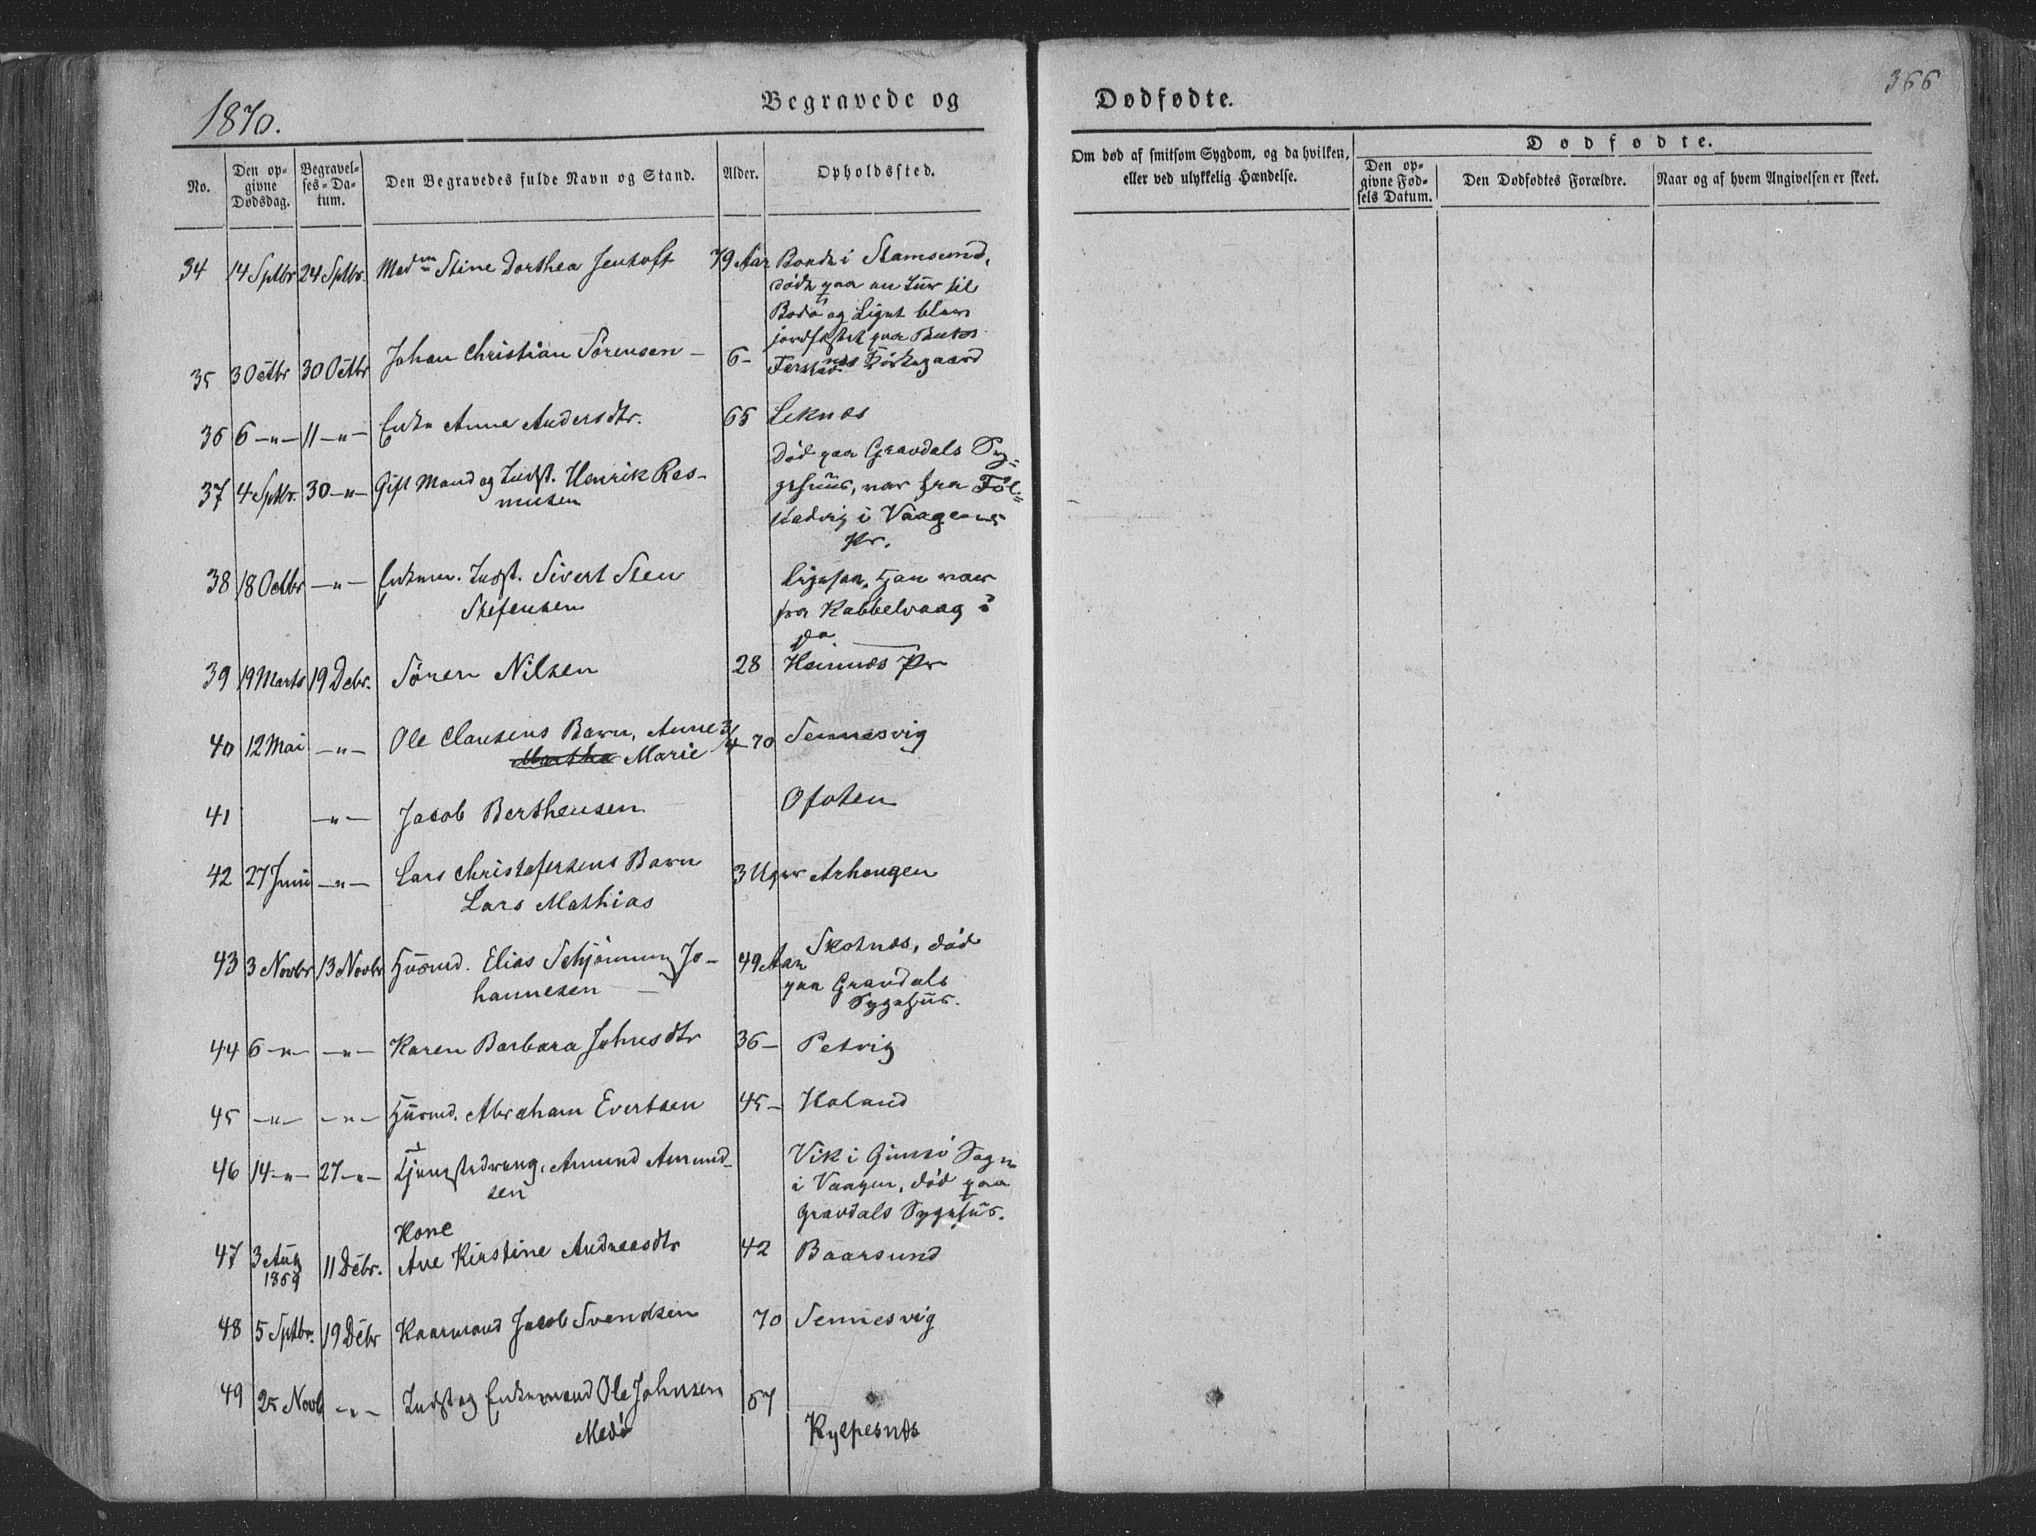 1870.
Begravede og
Dødfødte.
366
No.
Den op-
givne
Dødsdag.
Begravel-
ses-Da-
tum.
Den Begravedes fulde Navn og Stand.
Alder.
Opholdssted.
Om død af smitsom Sygdom, og da hvilken,
eller ved ulykkelig Hændelse.
Dødfødte.
Den op-
givne Fød-
sels Datum.
Den Dødfødtes Forældre.
Naar og af hvem Angivelsen er skeet.
34 14 Sptbr 24 Sptbr. Mad Stine Dorthea Jentoft 79 Aar Boede i Stamsund,
døde paa en Tur til
Bodø og Liget blev
jordfæstet paa Buks
næs Kirkegaard
35 3 Octbr 30 Octbr Johan Christian Sørensen - 6- Farstad
36 6 -"- 11 -"- Enke Anne Andersdtr. 65 Leknæs
37 4 Sptbr. 30 -"- Gift Mand og Indst. Henrik Ras-
musen
Død paa Gravdals Sy-
gehuus, var fra
i Vaagens
Pr.
38 18 Octbr -"- Enkem. Indst. Sivert Sten
Stefensen
Ligesaa. Han var
fra Kabbelvaag i
do
39 19 Marts 19 Debr. Søren Nilsen 28 Pr
40 12 Mai -"- Ole Clausens Barn, Anne 3/4 70 Sennesvig
Martha Marie
41 -"- Jacob Berthensen Ofoten
42 27 Juni -"- Lars Christofersens Barn 3 Uger
Lars Mathias
43 3 Novbr 13 Novbr Huusmd. Elias Schjønning Jo- 49 Aar Skotnæs, død
hannesen -
paa Gravdals
Sygehus.
44 6 -"- -"- Karen Barbara Johnsdtr 36- Petvig
45 -"- -"- Huusmd. Abraham Evertsen 45- Holand
46 14 -"- 27 -"- Tjenestedreng, Amund Amund-
sen
Vik i Gimsø Sogn
i Vaagen, død paa
Gravdals Sygehus.
Kone
47 3 Aug 11 Debr. Ane Kirstine Andreasdtr 42 Baarsund
1869
48 5 Sptbr. 19 Debr Kaarmand Jacob Svendsen 70 Sennesvig
49 25 Novb -"- Indst og Enkemand Ole Johnsen 57
Medø